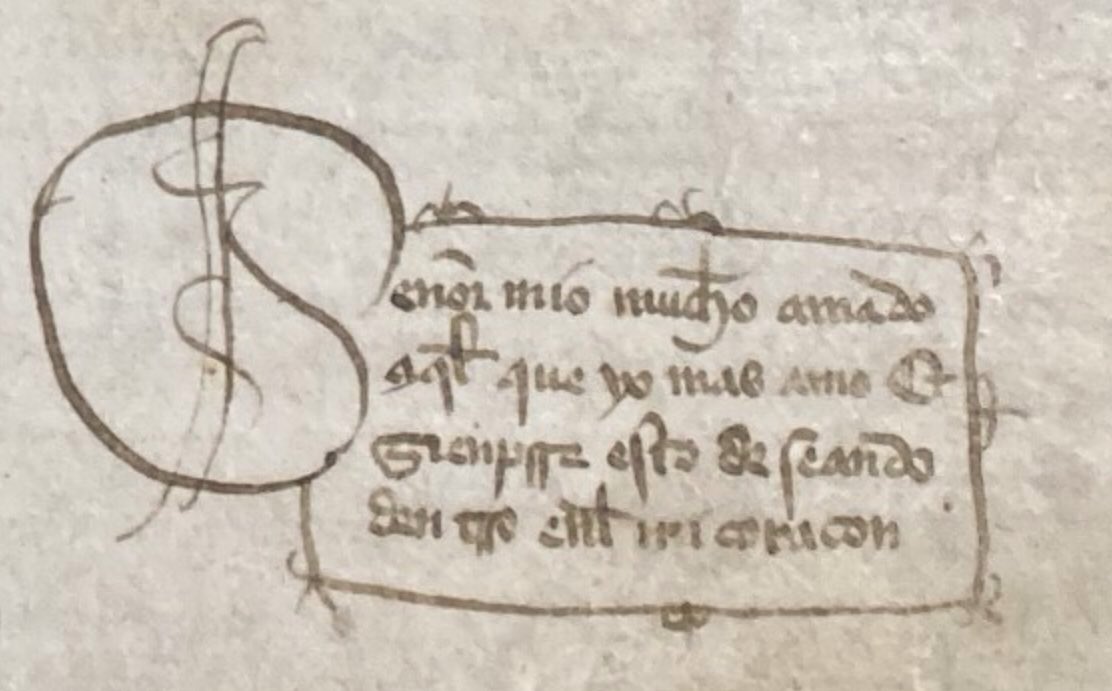 Señor mio mucho amado
aql̃ que yo mas amo Et
Sienpre esto de seando
den tro enl̃ mi coraçon